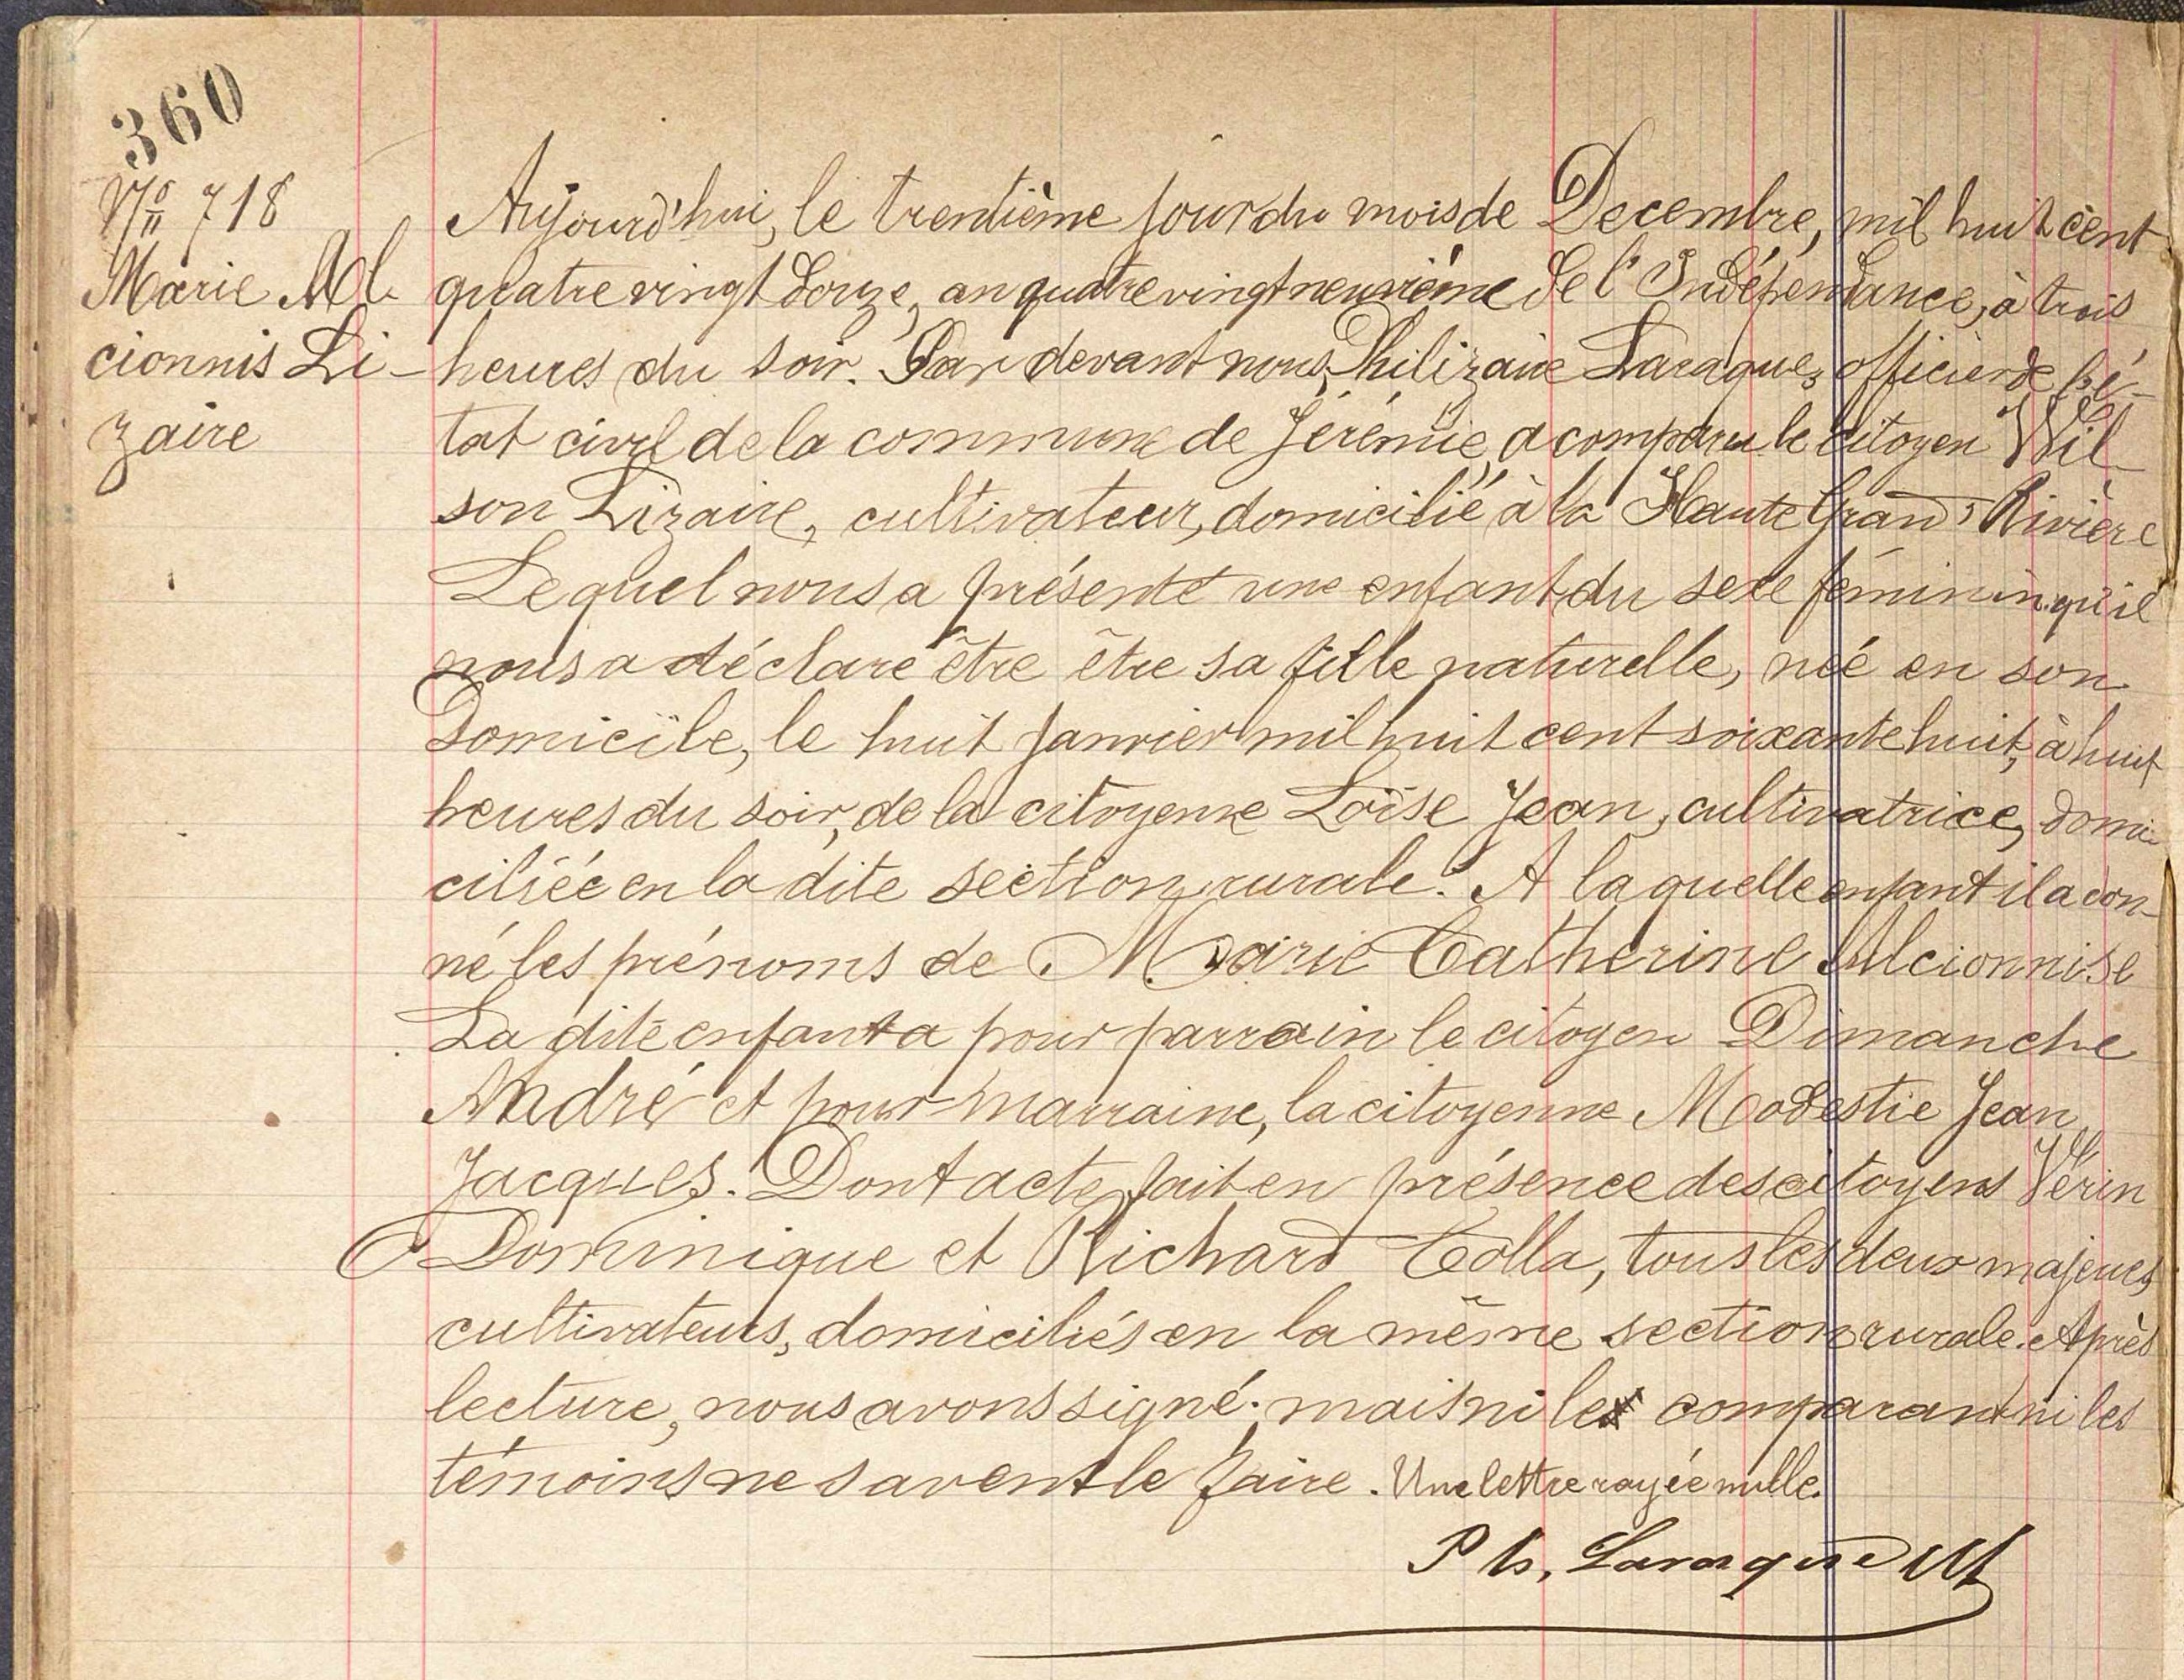 360
No 718
Marie Al
cionnis Li-
zaire
Aujourd'hui, le trentième jour du mois de Decembre, mil huit cent
quatre vingt douze, an quatre vingt neuvième de l'Indépendance, à trois
heures du soir. Par devant nous, Philizaire Laraque, officier de l'é-
tat civil de la commune de Jérémie, a comparu le citoyen Wil
son Lizaire, cultivateur, domicilié à la Haute Grand'Rivière
Lequel nous a présenté une enfant du sexe féminin qu'il
nous a déclaré être être sa fille naturelle, née en son
Domicile, le huit janvier mil huit cent soixante huit, à huit
heures du soir, de la citoyenne Loïse Jean, cultivatrice, domi
ciliée en la dite section rurale. A laquelle enfant il a don-
né les prénoms de Marie Catherine Alcionnise
La dite enfant a pour parrain le citoyen Dimanche
André et pour marraine, la citoyenne Modestie Jean
Jacques. Dont acte, fait en présence des citoyens Vérin
Dominique et Richard Colla, tous les deux majeurs,
cultivateurs, domiciliés en la même section rurale. Après
lecture, nous avons signé; mais ni le comparant ni les
témoins ne savent le faire. Une lettre rayée nulle.
Ph. Laraque